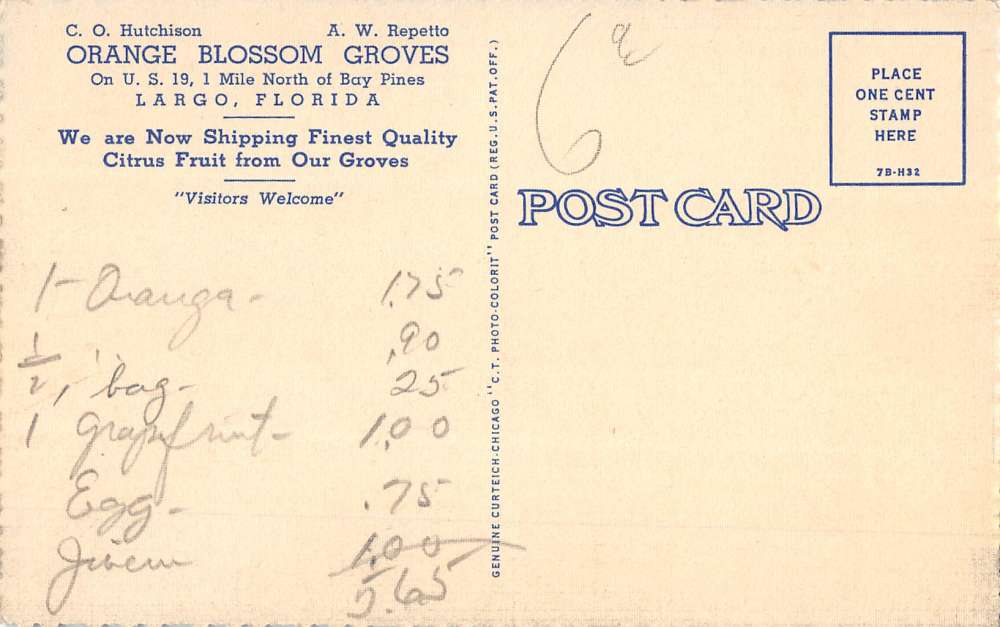 C. O. Hutchison A. W. Repetto
ORANGE BLOSSOM GROVES
On U. S. 19, 1 Mile North of Bay Pines
LARGO, FLORIDA
We are Now Shipping Finest Quality
Citrus Fruit from Our Groves
"Visitors Welcome"
1- Orange- 1.75
.90
1/2, bag- 25
1 Grapefruit- 1.00
Egg- .75
1.00
5.65
GENUINE CURTEICH-CHICAGO "C.T. PHOTO-COLORIT" POST CARD (REG. U.S. PAT. OFF.)
6
POST CARD
PLACE
ONE CENT
STAMP
HERE
7B-H32